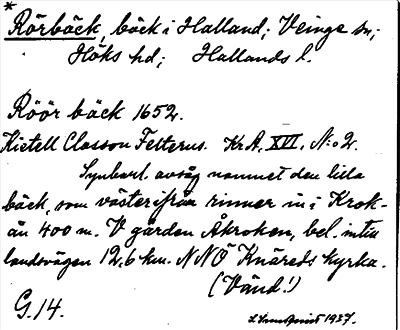 * Rörbäck, bäck i Halland; Veinge sn;
Höks hd; Hallands l.
Röör bäck 1652.
Kietell Classon Felterus. KrA, XVI, N:o 2.
Synbarl. avsåg namnet den lilla
bäck, som västerifrån rinner in i Krok-
ån 400 m. V gården Åkroken, bel. intill
landsvägen 12,6 km. NNÖ Knäreds kyrka.
(Vänd!)
G. 14.
1937.